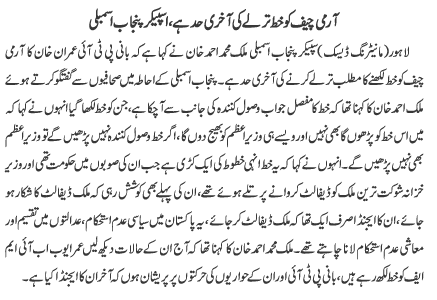 آرمی چیف کو خط ترلے کی آخری حد ہے، اسپیکر پنجاب اسمبلی
لاہور(مانیٹرنگ ڈیسک) اسپیکر پنجاب اسمبلی ملک محمد احمد خان نے کہا ہے کہ بانی پی ٹی آئی عمران خان کا آرمی
چیف کو خط لکھنے کا مطلب ترلے کرنے کی آخری حد ہے۔ پنجاب اسمبلی کے احاطہ میں صحافیوں سے گفتگو کرتے ہوئے
ملک احمد خان کا کہنا تھا کہ خط کا مفصل جواب وصول کنندہ کی جانب سے آچکا ہے، جن کو خط لکھا گیا انہوں نے کہا کہ
میں اس خط کو پڑھوں گا بھی نہیں اور ویسے ہی وزیر اعظم کو بھیج دوں گا، اگر خط وصول کنندہ نہیں پڑھیں گے تو وزیر اعظم
بھی نہیں پڑھیں گے۔ انہوں نے کہا کہ یہ خط انہی خطوط کی ایک کڑی ہے جب ان کی صوبوں میں حکومت تھی اور وزیر
خزانہ شوکت ترین ملک کو ڈیفالٹ کروانے پر تلے ہوئے تھے، ان کی پہلے بھی کوشش رہی کہ ملک ڈیفالٹ کا شکار ہو
جائے، ان کا ایجنڈا صرف ایک تھا کہ ملک ڈیفالٹ کر جائے، یہ پاکستان میں سیاسی عدم استحکام، عدالتوں میں تقسیم اور
معاشی عدم استحکام لانا چاہتے تھے۔ ملک محمد احمد خان کا کہنا تھا کہ آج ان کے حالات دیکھ لیں عمر ایوب اب آئی ایم
ایف کو خط لکھ رہے ہیں، بانی پی ٹی آئی اور ان کے حواریوں کی حرکتوں پر پریشان ہوں کہ آخر ان کا ایجنڈا کیا ہے۔